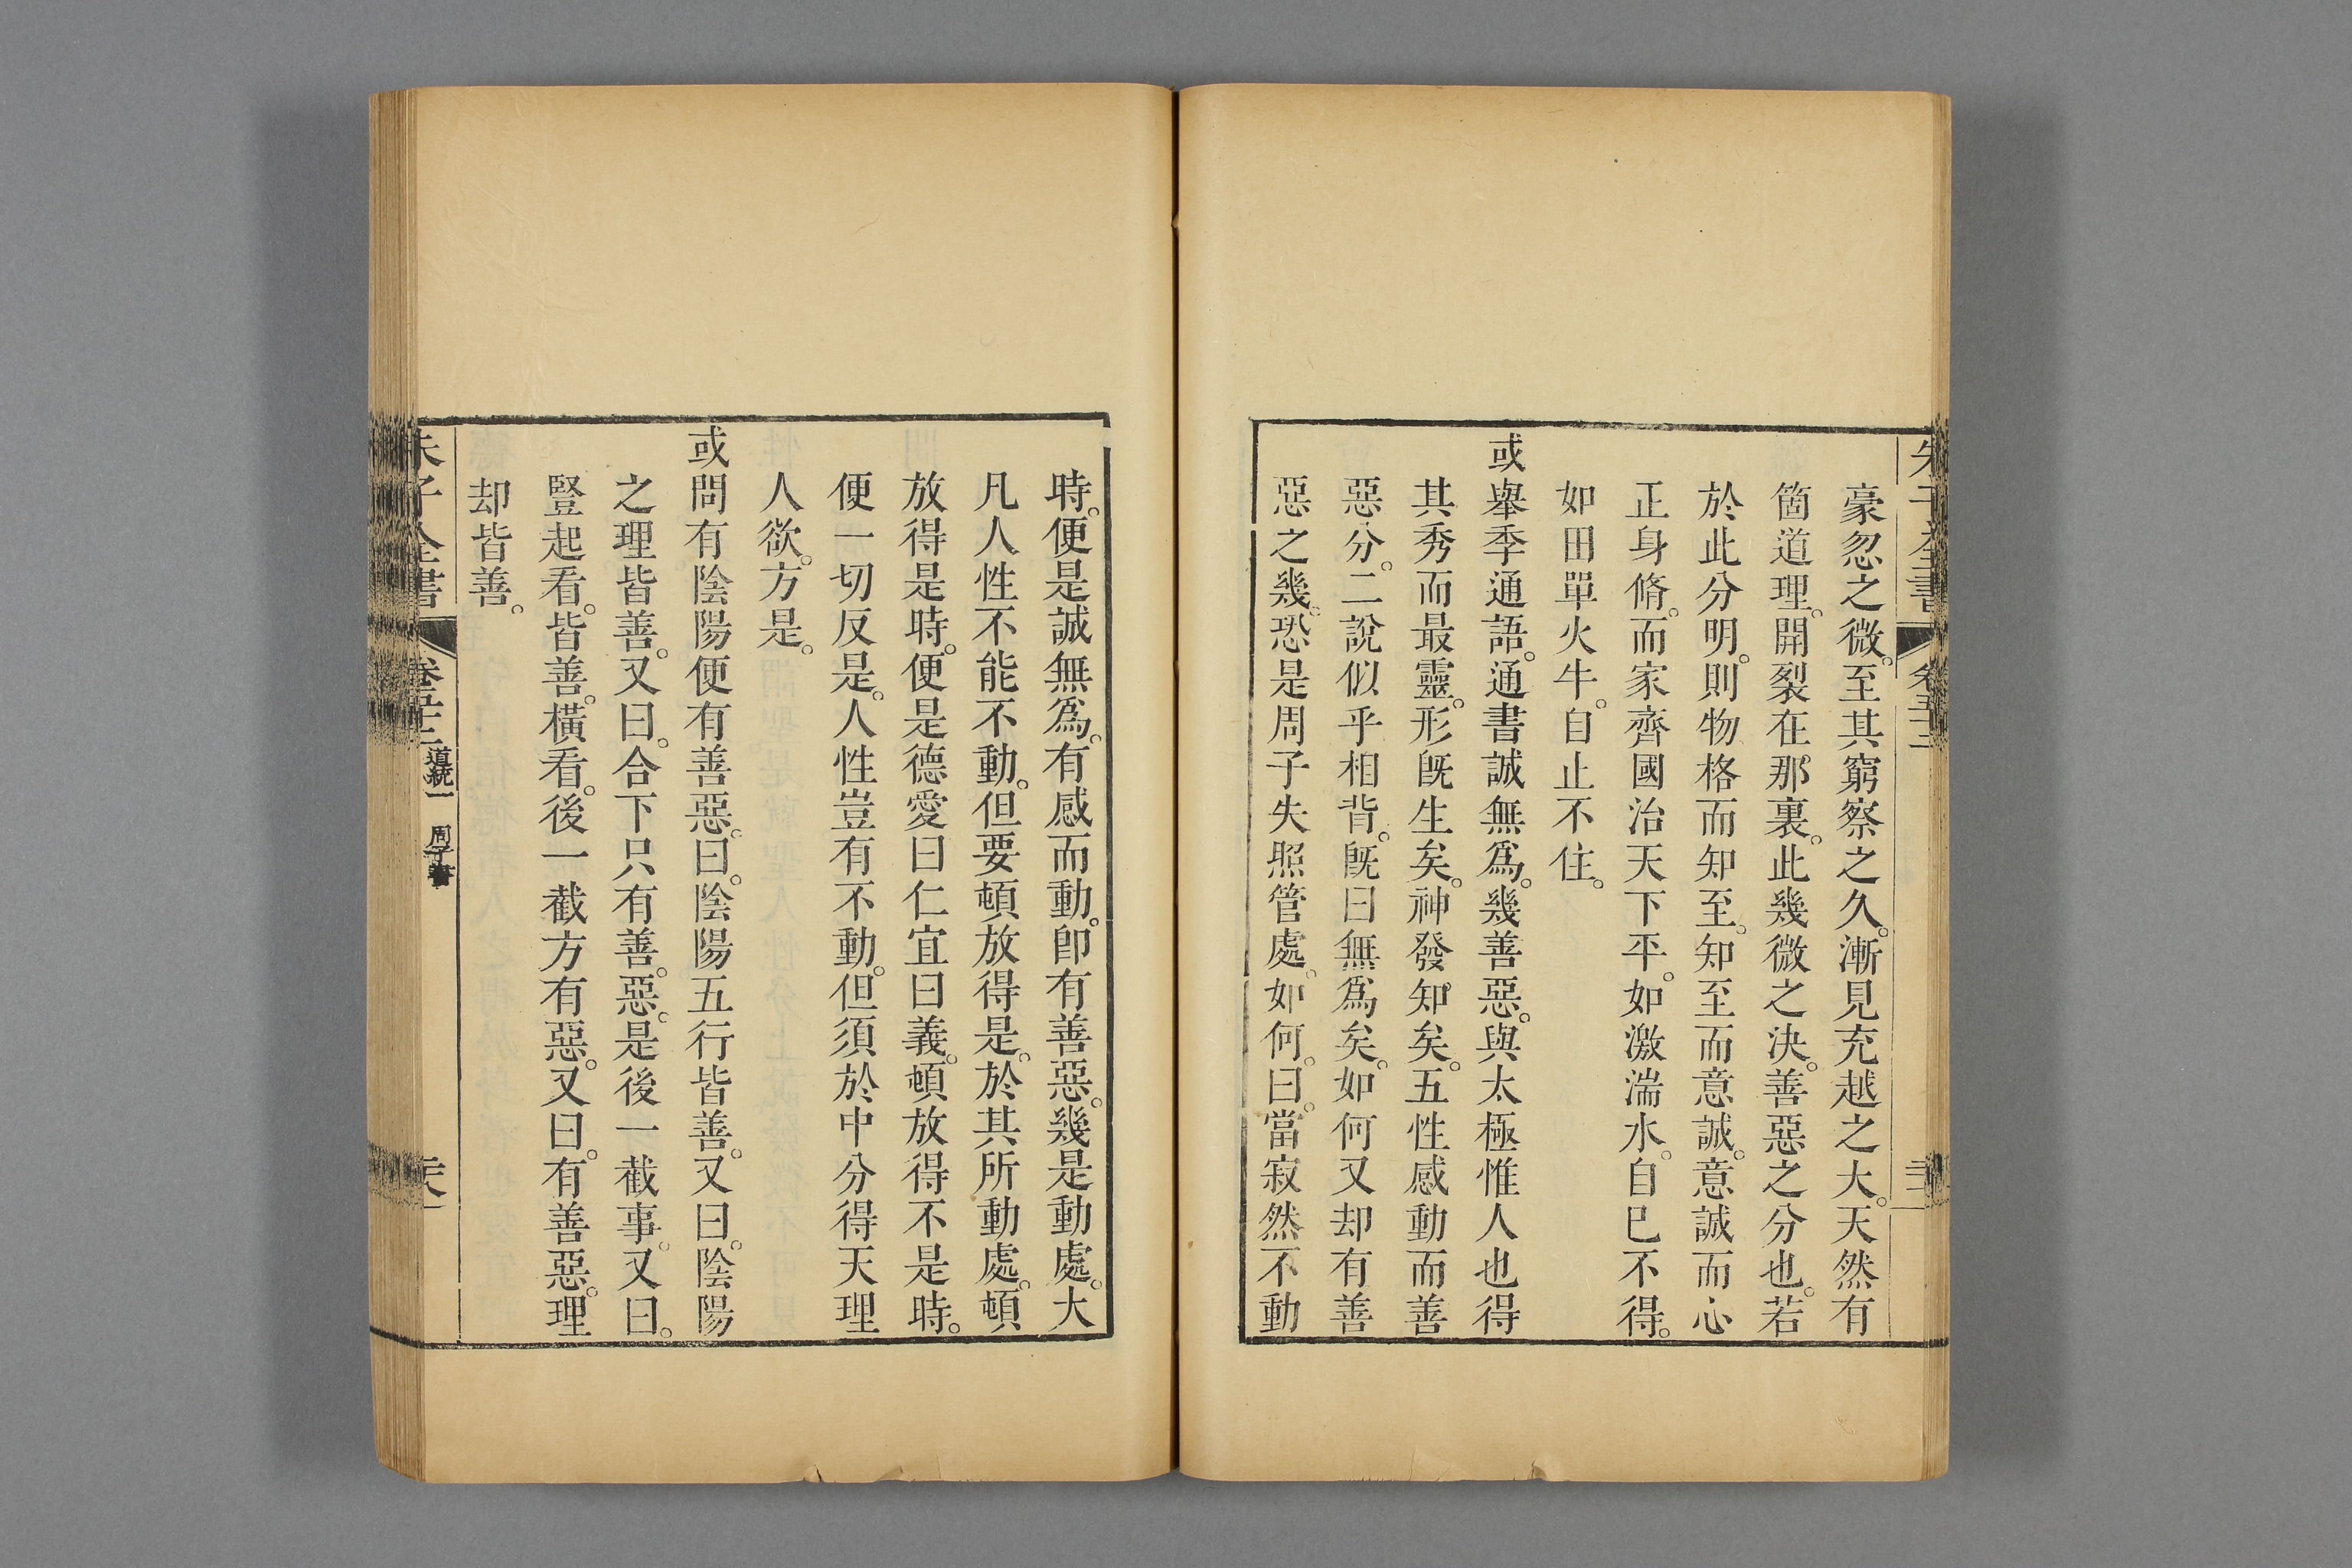 豪忽之微。至其窮察之久。漸見充越之大。天然有
箇道理。開裂在那裏。此幾微之決。善惡之分也。若
於此分明。則物格而知至。知至而意誠。意誠而心
正身脩。而家齊國治天下平。如激湍水。自巳不得。
如田單火牛。自止不住。
或舉季通語。通書誠無爲。幾善惡。與太極惟人也得
其秀而最靈。形旣生矣。神發知矣。五性感動而善
惡分。二說似乎相背。旣曰無爲矣。如何又却有善
惡之幾。恐是周子失照管處。如何。曰。當寂然不動
時。便是誠無爲。有感而動。卽有善惡。幾是動處。大
凡人性不能不動。但要頓放得是。於其所動處。頓
放得是時。便是德愛曰仁宜曰義。頓放得不是時。
便一切反是。人性豈有不動。但須於中分得天理
人欲。方是。
或問有陰陽便有善惡。曰。陰陽五行皆善。又曰。陰陽
之理皆善。又曰。合下只有善。惡。是後一截事。又曰。
豎起看。皆善。橫看。後一截方有惡。又曰。有善惡。理
却皆善。
朱子全書
道統一 周子書